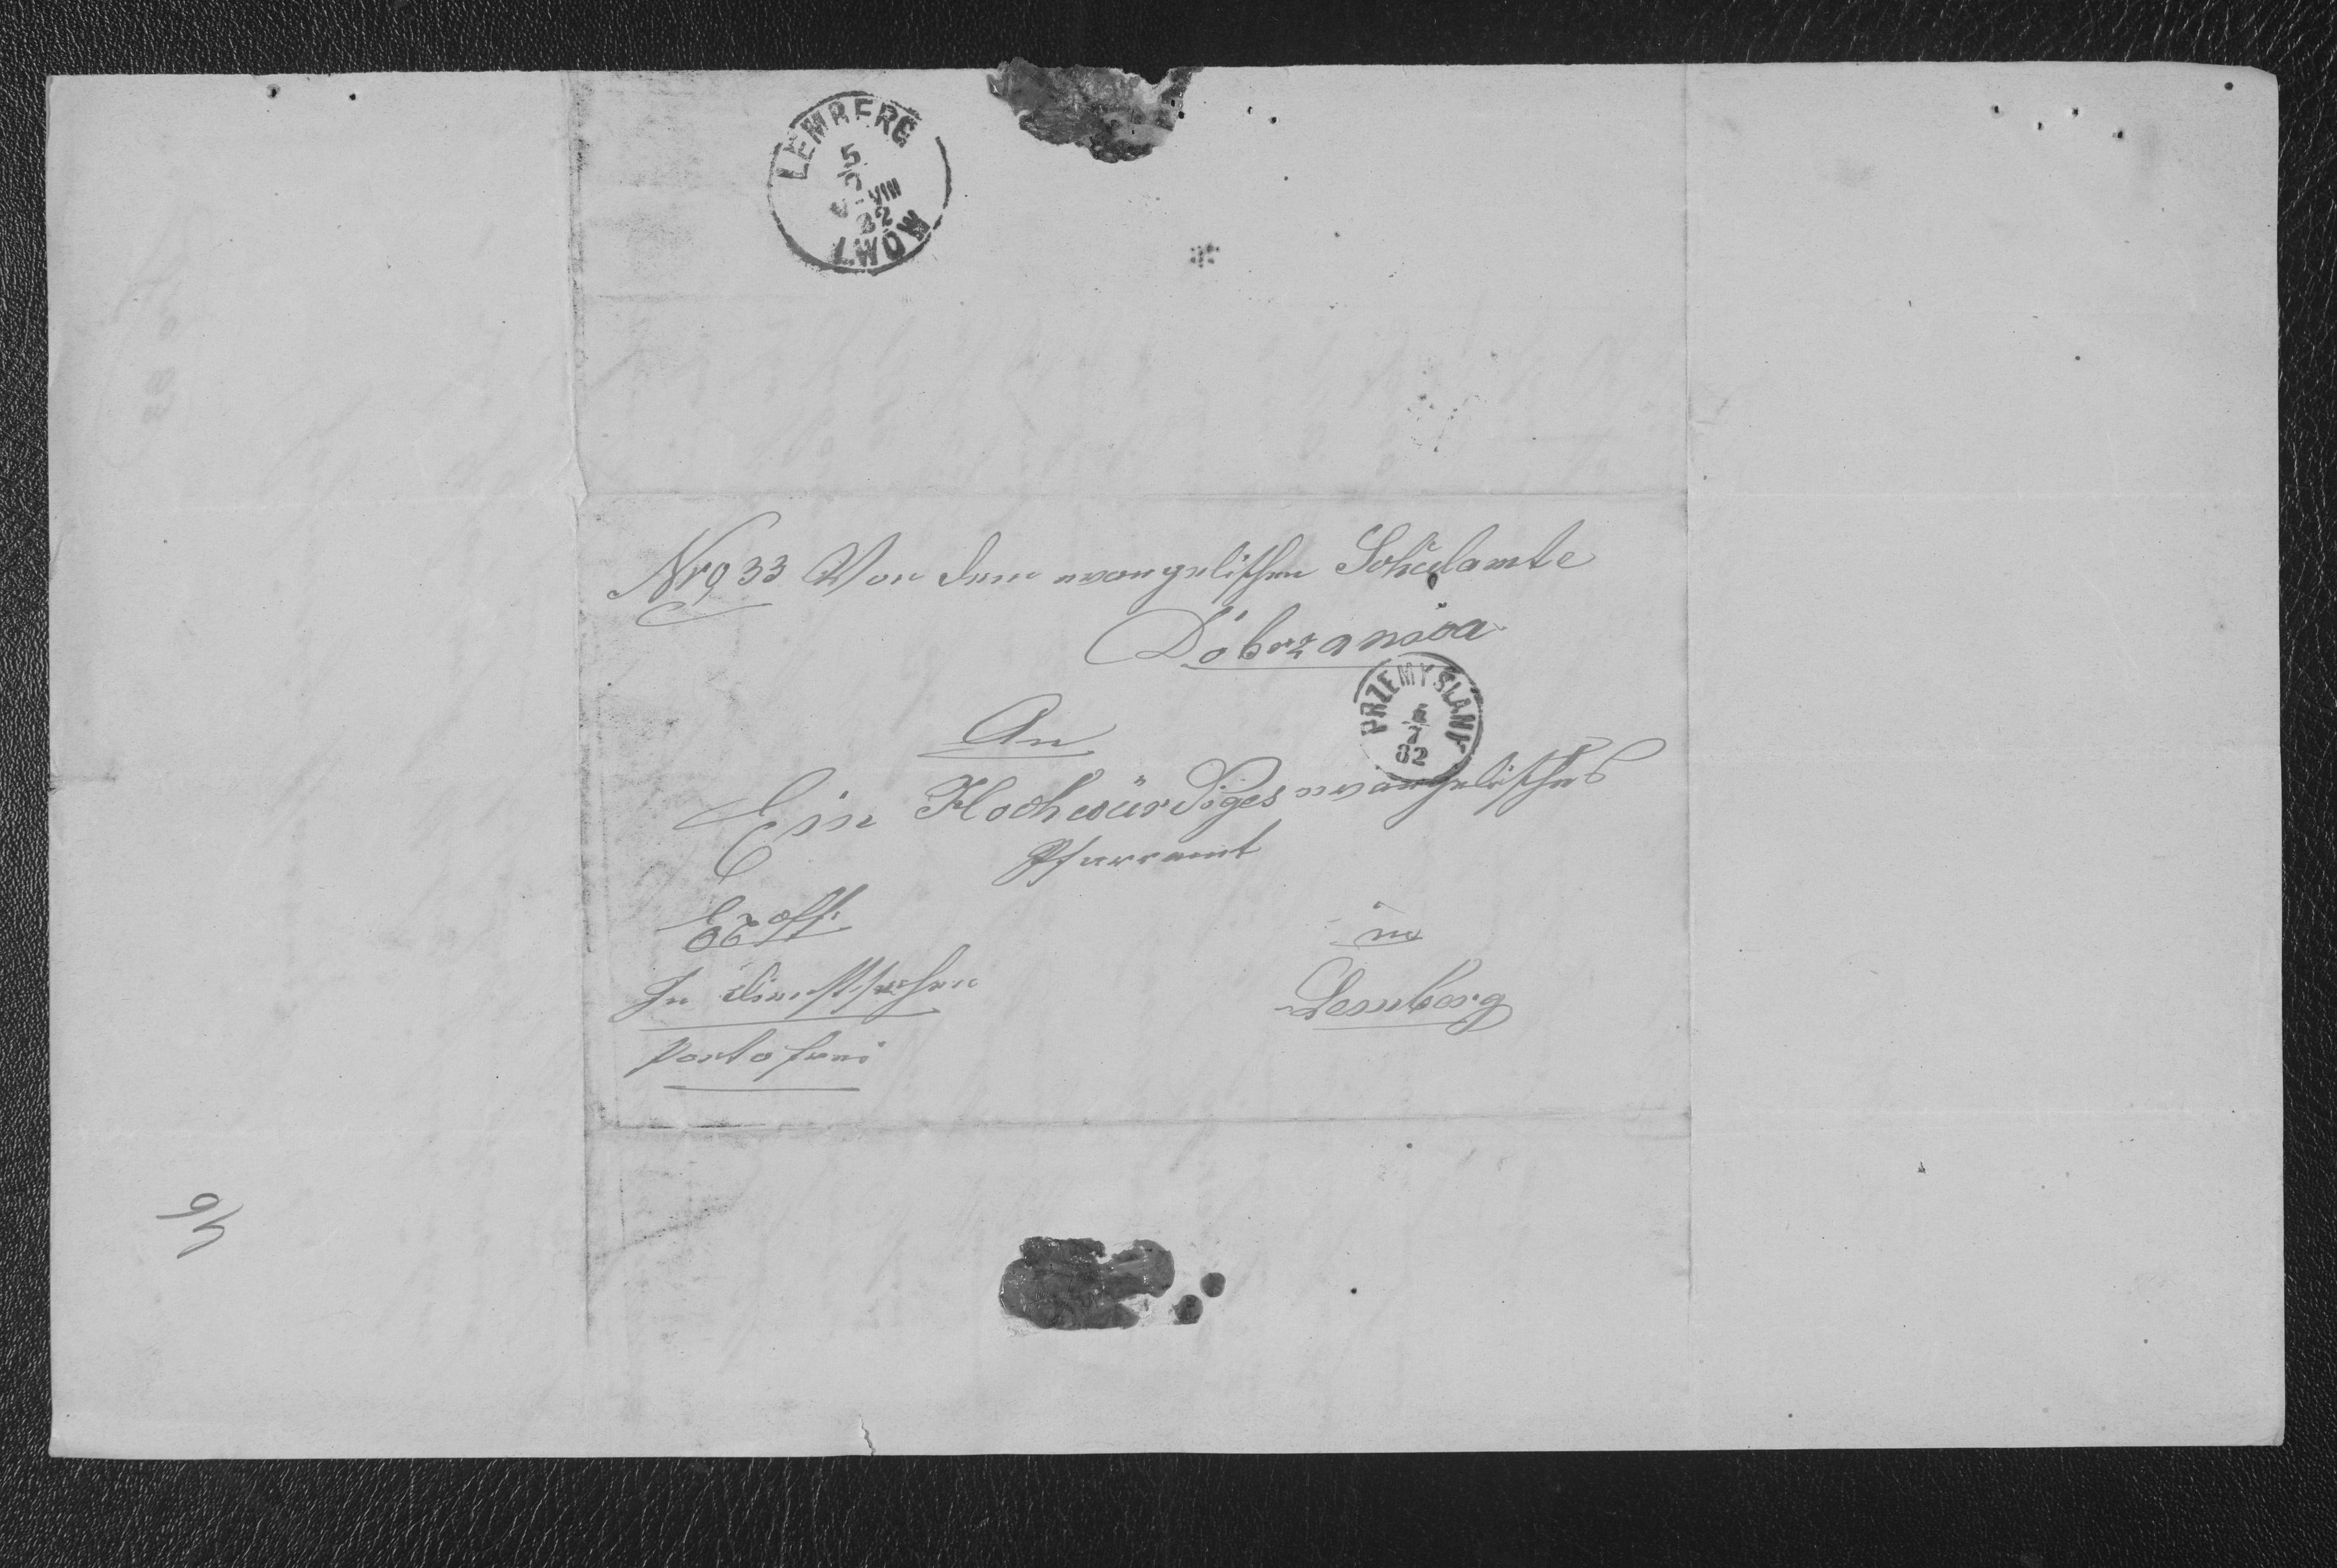 LEMBERG
5
VIII
82
LWÓW
Nro 33 Von dem evangelischen Schulamte
Dobrzanica
PRZEMYŚLANY
82
An
Ein Hochwürdiges evangelisches
Pfarramt
Ex off:
in
In Dienstsachen
Lemberg
portofrei